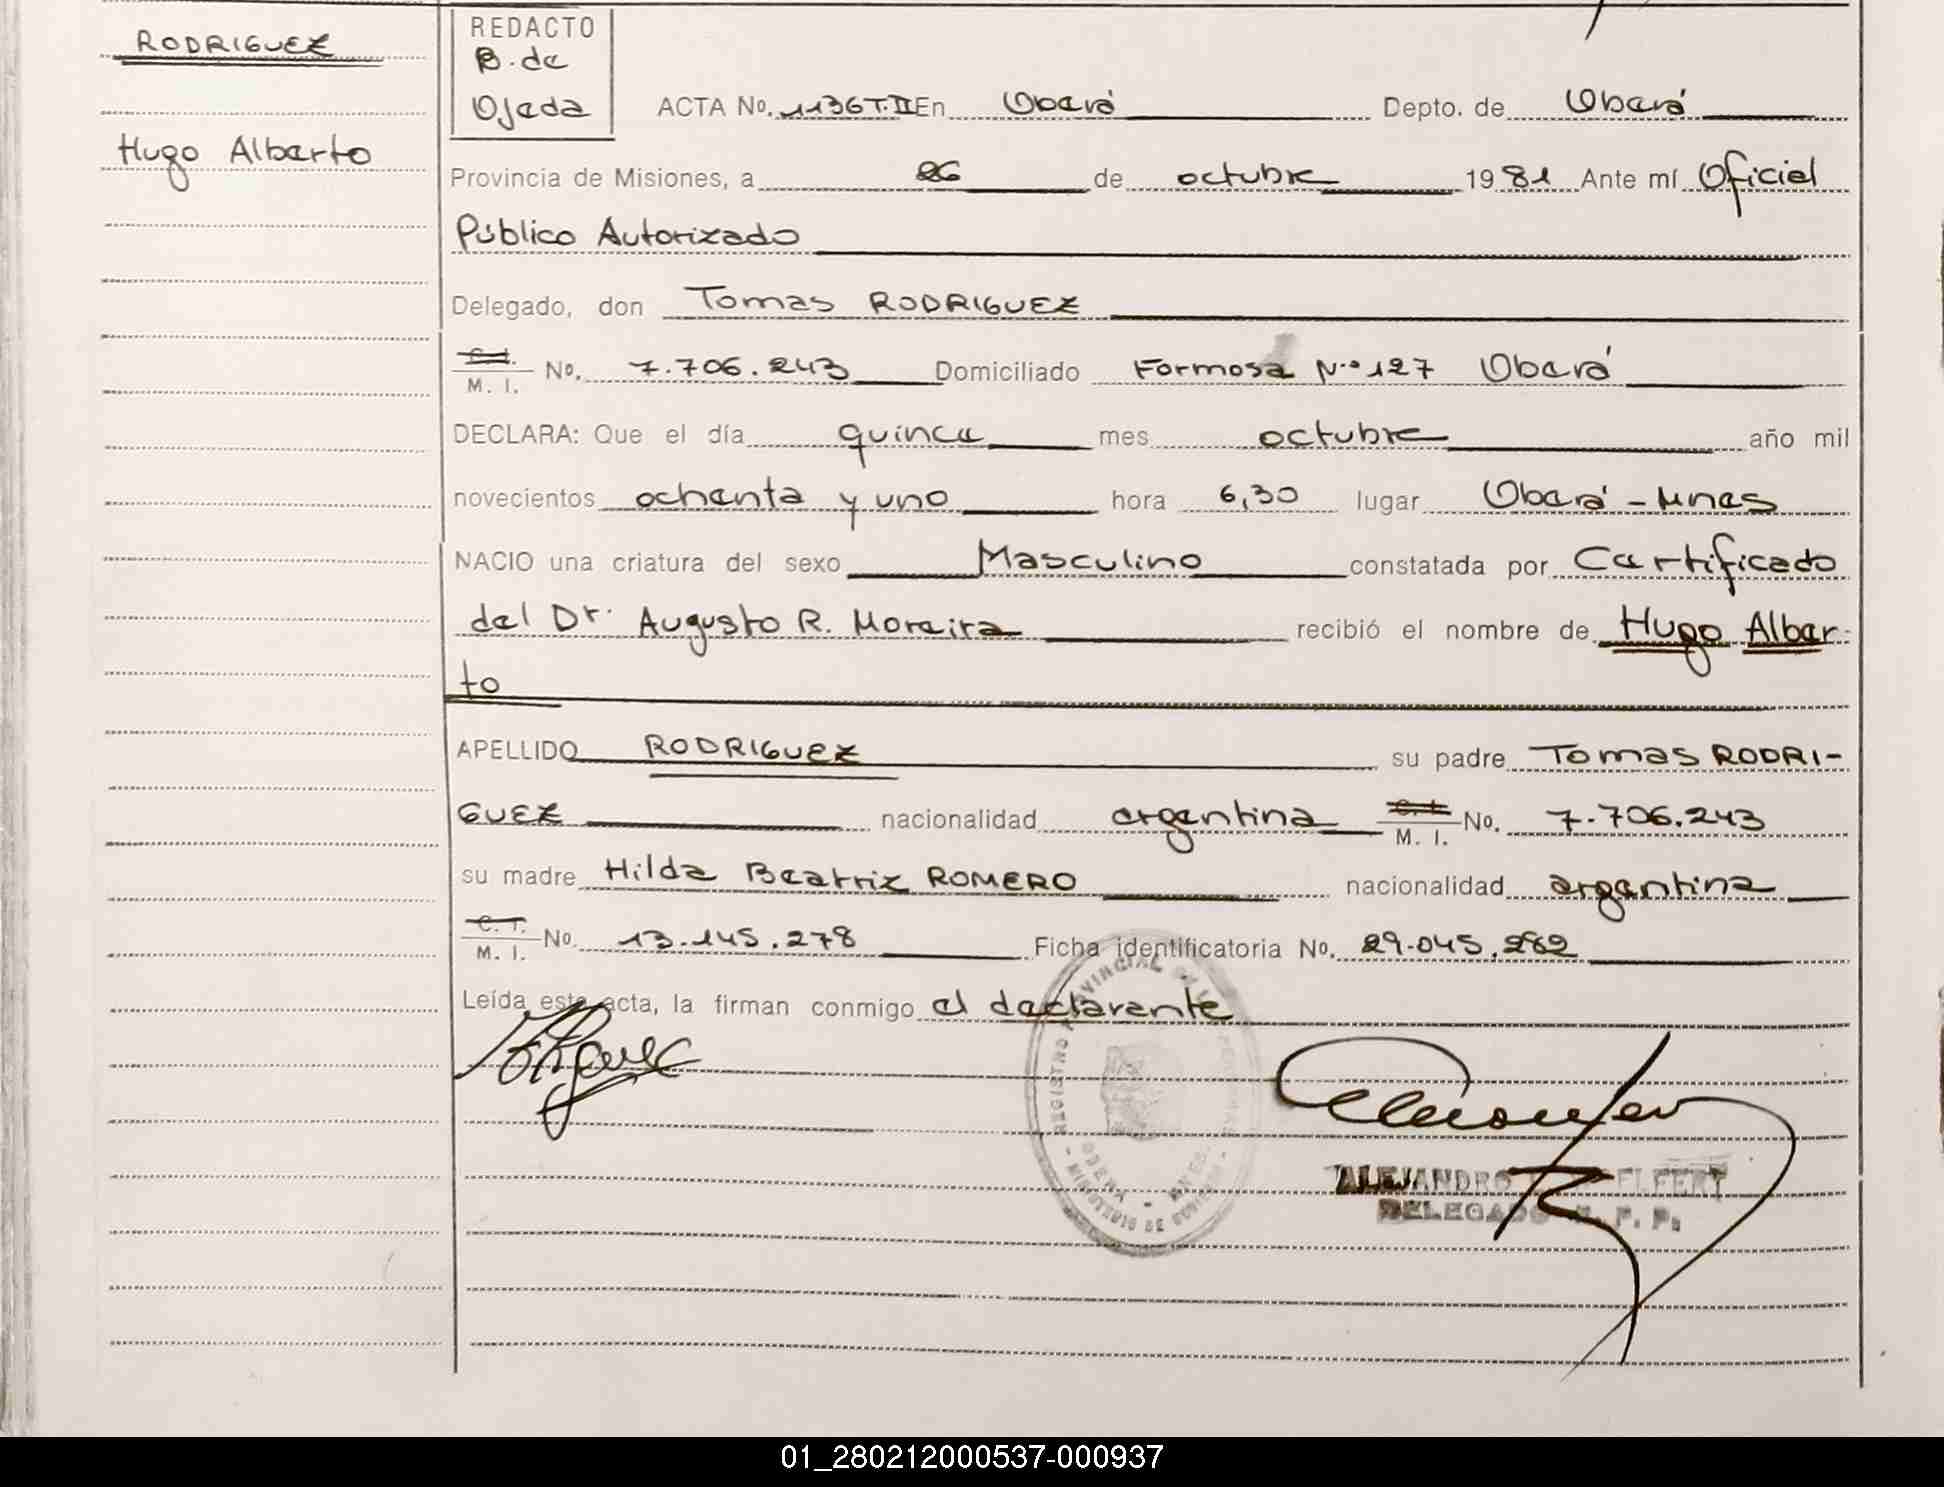 RODRIGUEZ
Hugo Alberto
REDACTO
B. de
Ojeda
ACTA No. 1136 T. II En Oberá Depto. de Oberá
Provincia de Misiones, a 26 de octubre 1981 Ante mí Oficial
Público Autorizado
Delegado, don Tomas RODRIGUEZ
C.I.
M. I. No. 7.706.243 Domiciliado Formosa N.º 127 Oberá
DECLARA: Que el día quince mes octubre año mil
novecientos ochenta y uno hora 6,30 lugar Oberá - Mnes
NACIO una criatura del sexo Masculino constatada por Certificado
del Dr. Augusto R. Moreira recibió el nombre de Hugo Alber-
to
APELLIDO RODRIGUEZ su padre Tomas RODRI-
GUEZ nacionalidad argentina C.I. M. I. No. 7.706.243
su madre Hilda Beatriz ROMERO nacionalidad argentina
C. I.
M. I. No. 13.145.278 Ficha identificatoria No. 29.045.282
Leída este acta, la firman conmigo el declarante
REGISTRO PROVINCIAL DE LAS PERSONAS
OBERA - MNES.
- MINISTERIO DE GOBIERNO -
ALEJANDRO
DELEGADO R. P. P.
01_280212000537-000937